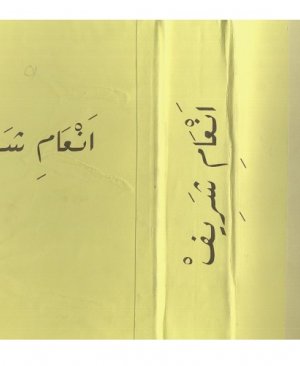 اَنْعَامِ شَ
اَنْعَامِ شَرِيفْ